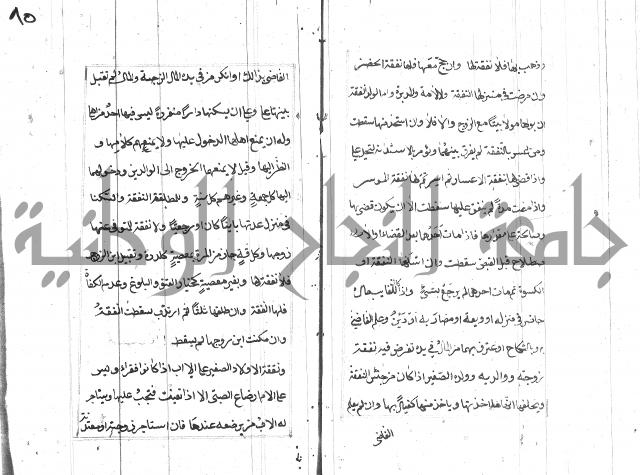 وذهب بها فلا نفقة لها وان حج معها فلها نفقة الحضر
وان مرضت في منزلها النفقة وللامة والمدبرة وام الولد النفقة
ان بوأها مولاها بيتا مع الزوج والا فلا وان استخدمها سقطت
ومن اعسر بالنفقة لم يفرق بينهما ويؤمر بالاستدانة لتحيل عليه
واذا قضي لها نفقة الاعسار ثم ايسر تمم لها نفقة الموسر
واذا مضت مدة لم ينفق عليها سقطت الا ان يكون قضي بها
وصالحته على مقدارها فاذا مات احدهما بعد القضاء او الاصـ
ـطلاح قبل القبض سقطت وان اسلفها النفقة او
الكسوة ثم مات احدهما لم يرجع بشيء واذا كان للغايب مال
حاضر في منزله او وديعة او مضاربة او دين وعلم القاضي
به وبالنكاح او اعترف بهما من المال في يده يفرض فيه نفقة
زوجته ووالديه وولده الصغير اذا كان من جنس النفقة
ويحلفها انها ما اخذتها وياخذ منها كفيلا بها وان لم يعلم
القاضي
٨٥
القاضي بذلك او انكر من في يده المال الزوجية والمال لم تقبل
بينتها عليه وعليه ان يسكنها دارا منفردة ليس فيها احد من اهله
وله ان يمنع اهلها الدخول عليها ولا يمنعهم كلامها و
النظر اليها وقيل لا يمنعها الخروج الى الوالدين ودخولهما
اليها كل جمعة وغيرهم كل سنة وللمطلقة النفقة والسكنى
في منزل عدتها باينا كان او رجعيا ولا نفقة للمتوفى عنها
زوجها وكل فرقة جات من المراة بمعصية كالردة وتقبيل ابن الزوج
فلا نفقة لها وبغير معصية كخيار العتق والبلوغ وعدم الكفاة
فلها النفقة وان طلقها ثلثا ثم ارتدت سقطت النفقة
وان مكنت ابن زوجها لم يسقط
ونفقة الاولاد الصغير على الاب اذا كانوا فقراء وليس
على الام ارضاع الصبي الا اذا تعينت فتجب عليها ويستاجر
له الاب من يرضعه عندها فان استاجر زوجته او معتدته
جامعة النجاح الوطنية